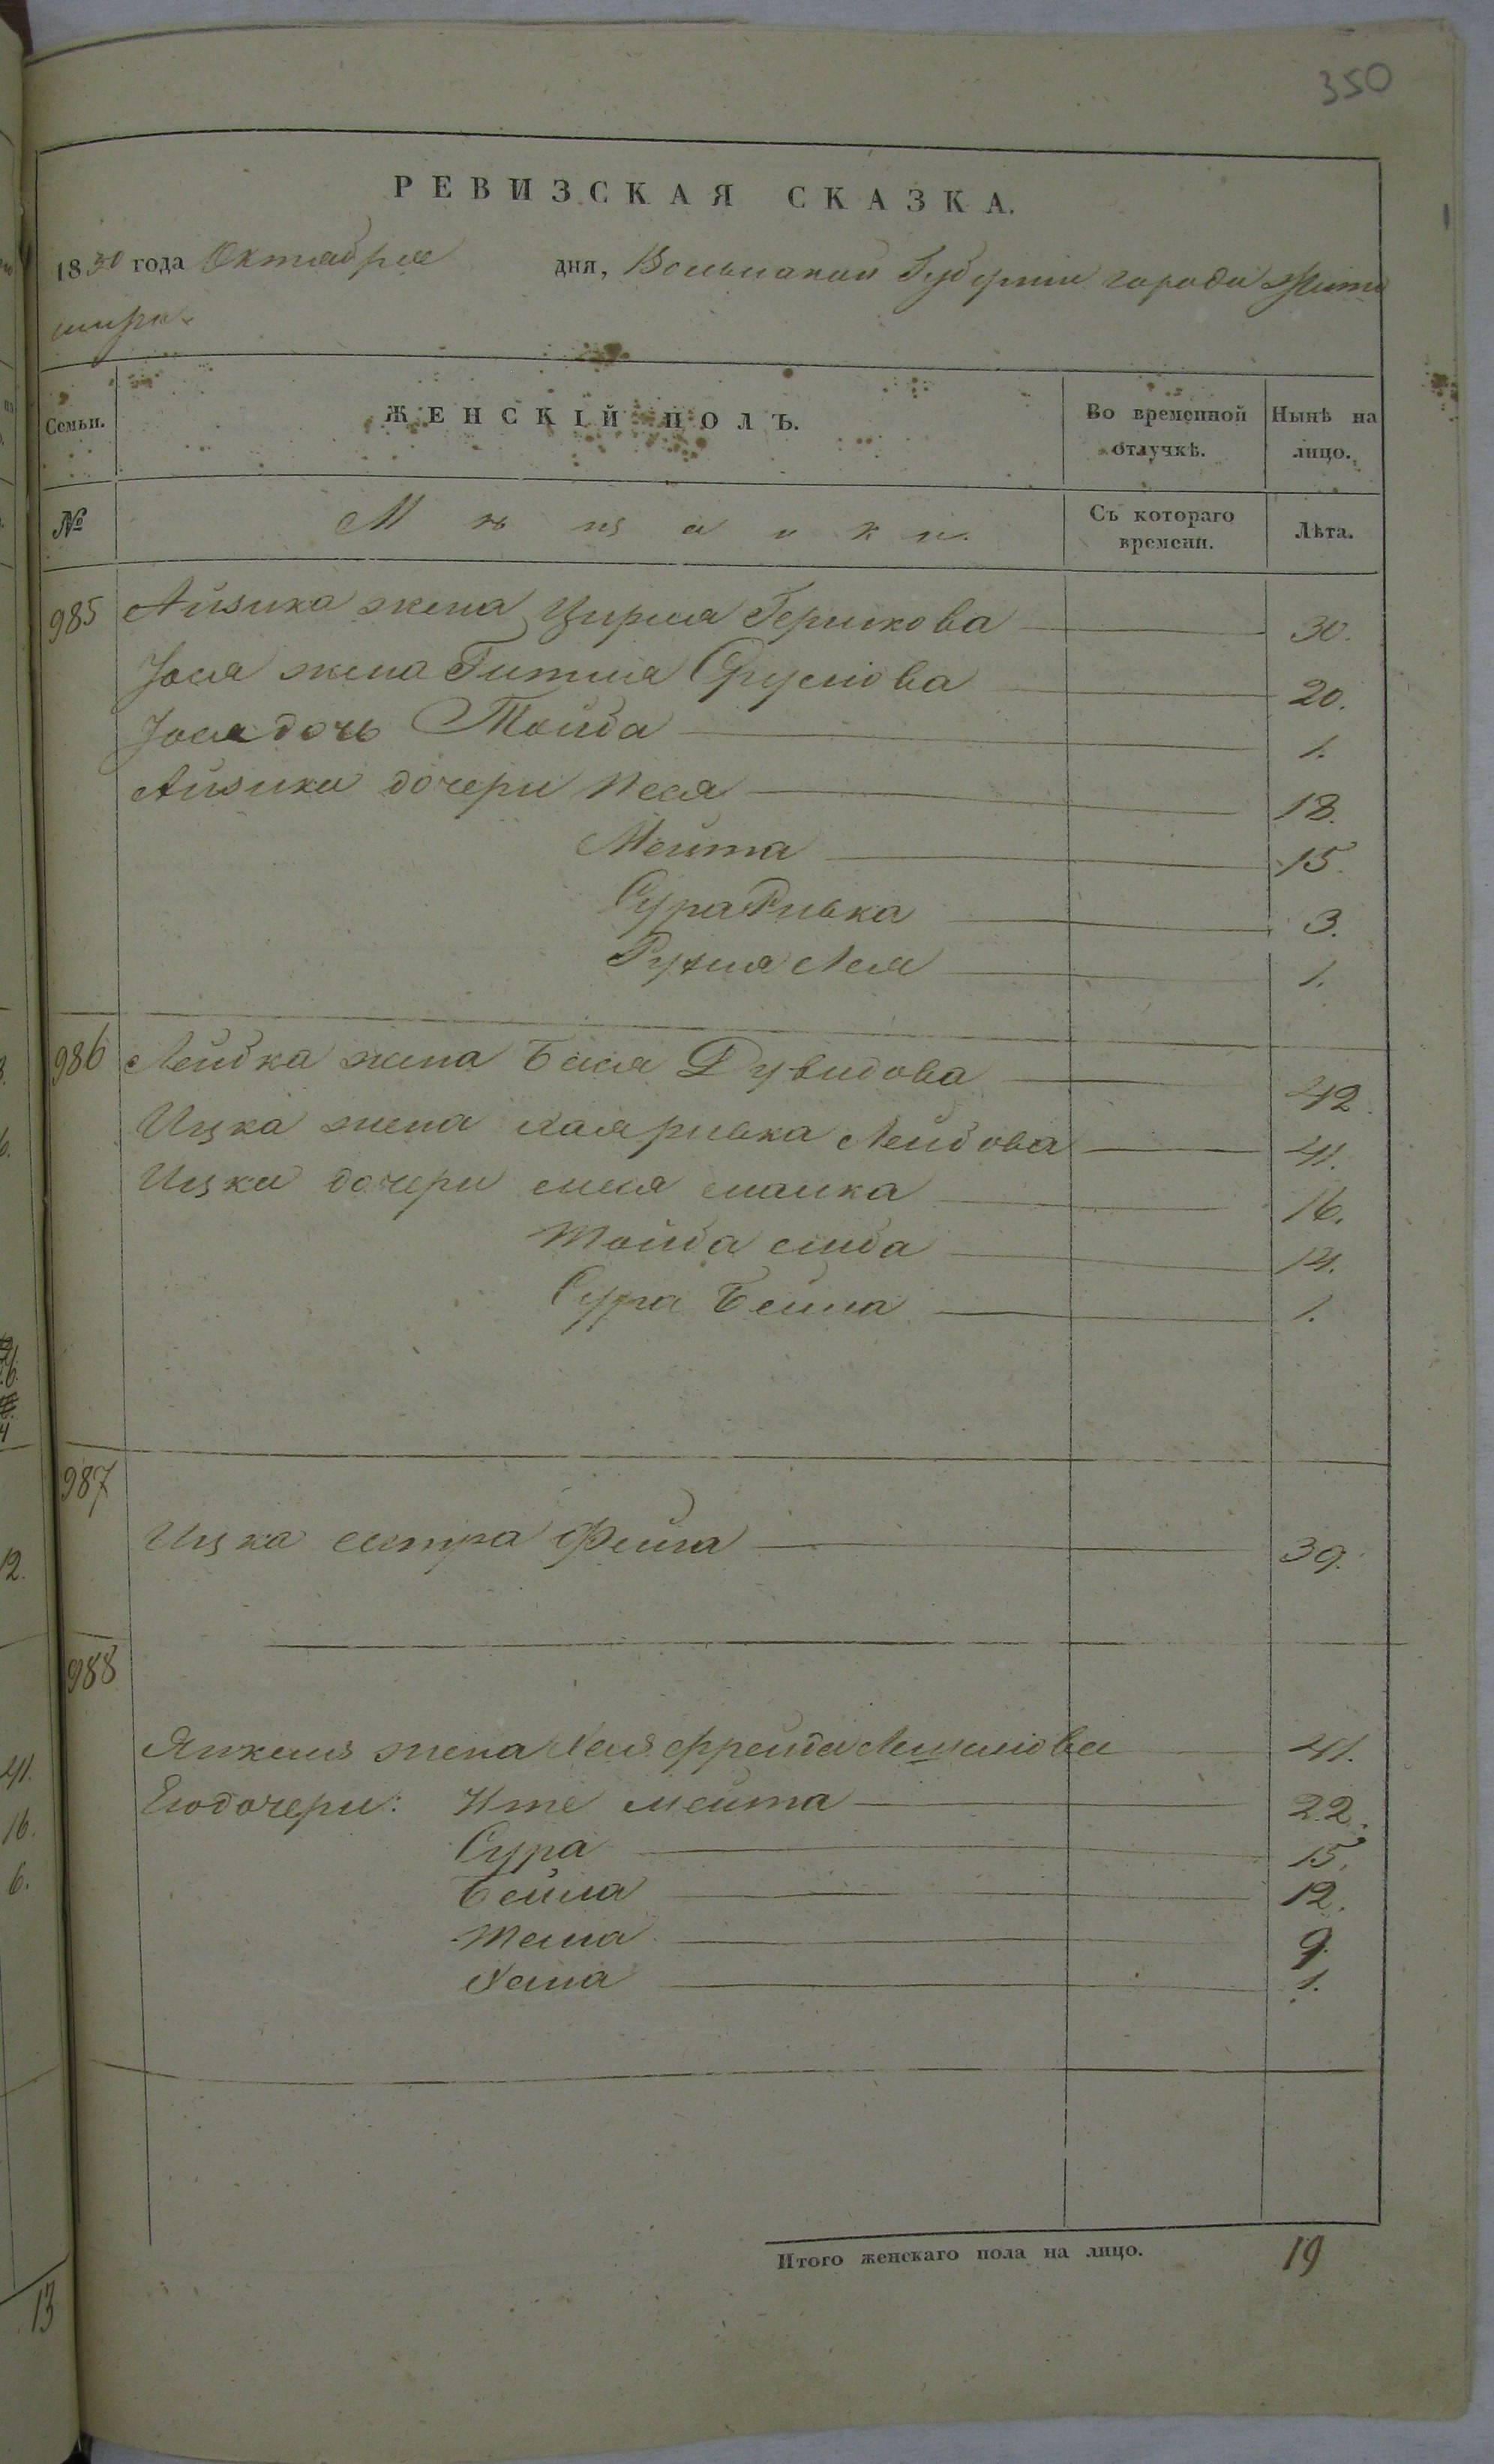 350
РЕВИЗСКАЯ СКАЗКА.
1850 года Октября дня, Волынской Губерніи города Жито
мира
Семьи. ЖЕНСКІЙ ПОЛЪ. Во временной отлучкѣ. Нынѣ на лицо.
№ Мѣщанки. Съ котораго времени. Лѣта.
985 Айзика жена Цирля Гершкова 30.
Іося жена Гитля Сруліова 20.
Іося дочь Тойба 1.
Айзика дочери Песя 18.
Мейта 15.
Сура Ривка 3.
Рухля Лея 1.
986 Лейбка жена Бася Дувидова 42.
Ицка жена Хая ривка Лейбова 41.
Ицка дочери 16.
Тойба 14.
Сура Бейла 1.
987
Ицка сестра Фейга 39.
988
Янкеля жена Хая фрейда 41.
Его дочери: Ите мейта 22.
Сура 15.
Бейла 12.
9.
1.
Итого женскаго пола на лицо. 19
41.
16.
6.
12.
13